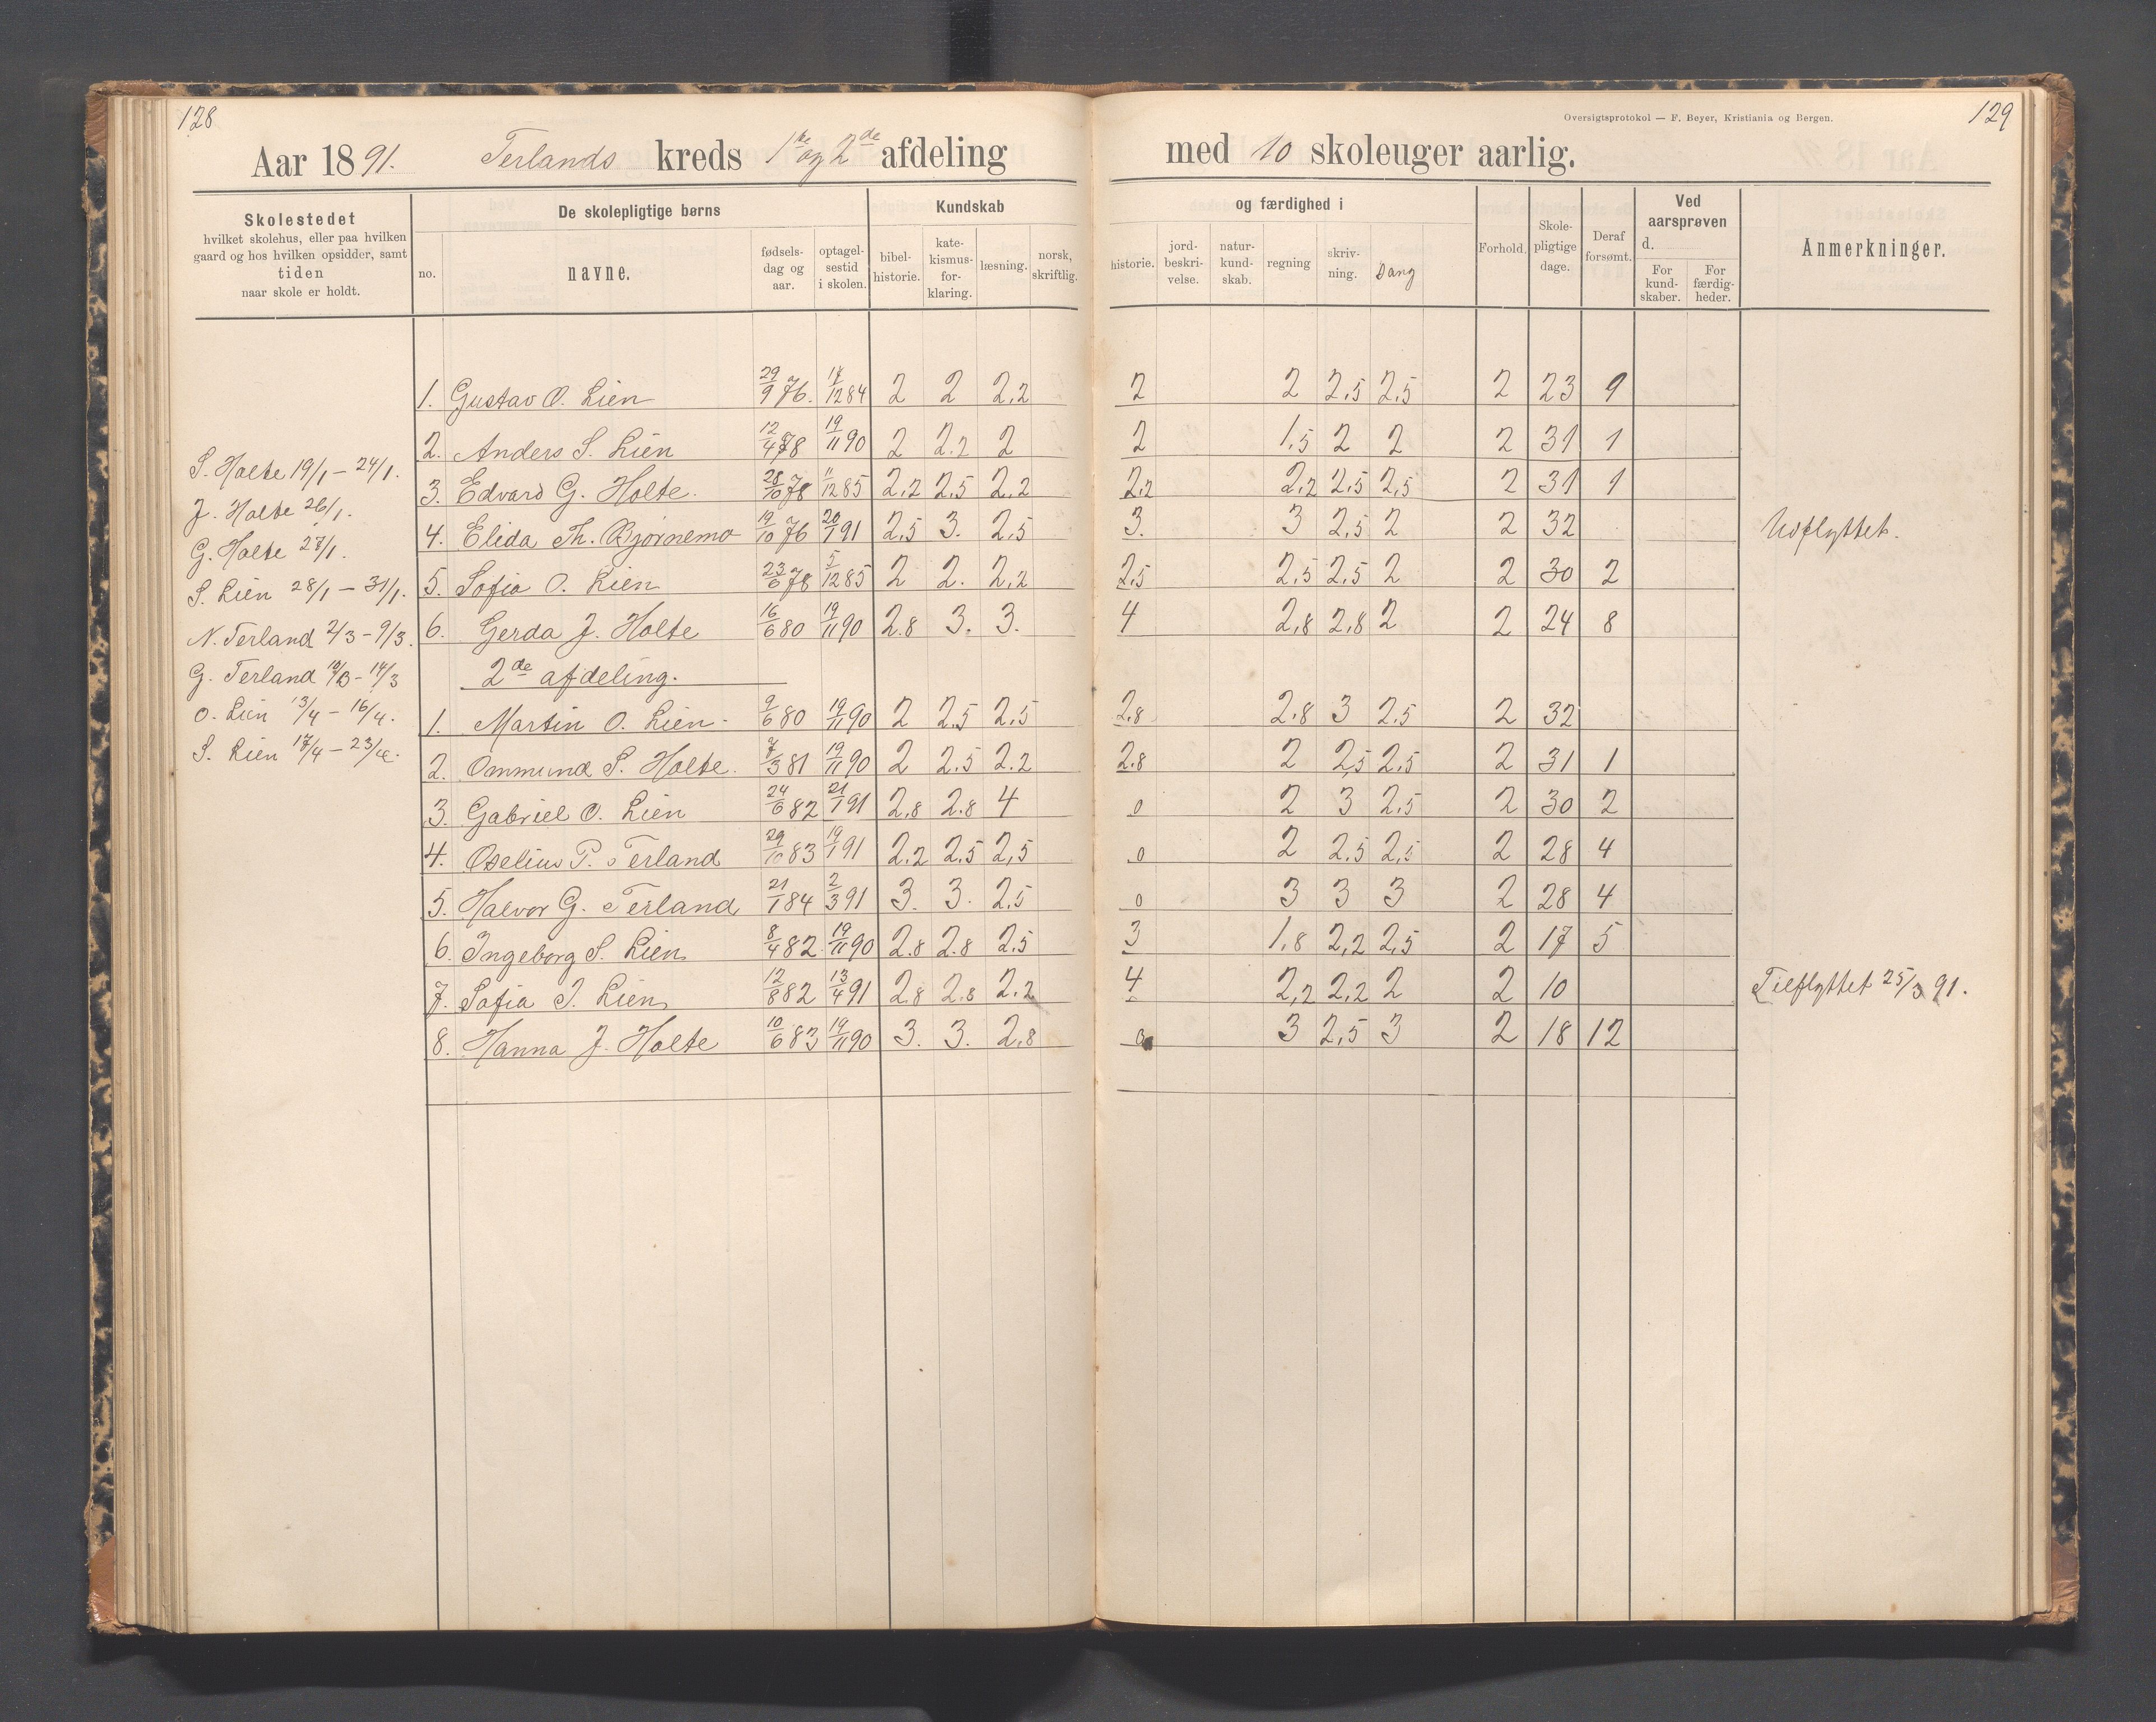 128
Aar 1891. Terlands kreds 1ste og 2de afdeling
Skolestedet
hvilket skolehus, eller paa hvilken
gaard og hos hvilken opsidder, samt
tiden
naar skole er holdt.
De skolepligtige børns
no.
navne.
fødsels-
dag og
aar.
optagel-
sestid
i skolen.
Kundskab
bibel-
historie.
kate-
kismus-
for-
klaring.
læsning.
norsk,
skriftlig.
S. Holte 19/1 – 24/1.
J. Holte 26/1.
G. Holte 27/1.
S. Lien 28/1 – 31/1.
N. Terland 2/3 – 9/3.
G. Terland 10/3 – 14/3
O. Lien 13/4 – 16/4.
S. Lien 17/4 – 23/4.
1. Gustav O. Lien 29/9 76. 17/12 84 2 2 2,2
2. Anders S. Lien 12/4 78 19/11 90 2 2.2 2
3. Edvard G. Holte. 28/10 78 11/12 85 2,2 2,5 2,2
4. Elida Th. Bjørnemo 19/10 76 20/1 91 2,5 3. 2,5
5. Sofia O. Lien 23/6 78 5/12 85 2 2. 2,2
6. Gerda J. Holte 16/6 80 19/11 90 2.8 3. 3.
2de afdeling.
1. Martin O. Lien. 9/6 80 19/11 90 2 2.5 2.5
2. Ommund S. Holte. 7/3 81 19/11 90 2 2.5 2.2
3. Gabriel O. Lien 24/6 82 21/1 91 2,8 2.8 4
4. Oselius P. Terland 29/10 83 19/1 91 2.2 2.5 2,5
5. Halvor G. Terland 21/1 84 2/3 91 3. 3. 2,5
6. Ingeborg S. Lien 8/4 82. 19/11 90 2.8 2.8 2.5
7. Sofia I. Lien 12/8 82 13/4 91 2.8 2.8 2.2
8. Hanna J. Holte 10/6 83 19/11 90 3. 3. 2,8
Oversigtsprotokol — F. Beyer, Kristiania og Bergen.
129
med 10 skoleuger aarlig.
og færdighed i
historie.
jord-
beskri-
velse.
natur-
kund-
skab.
regning
skriv-
ning.
Sang
Forhold.
Skole-
pligtige
dage.
Deraf
forsømt.
Ved
aarsprøven
d.
For
kund-
skaber.
For
færdig-
heder.
Anmerkninger.
2 2 2,5 2,5 2 23 9
2 1,5 2 2 2 31 1
2,2 2,2 2,5 2,5 2 31 1
3. 3 2,5 2 2 32 Udflyttet.
2,5 2,5 2,5 2 2 30 2
4 2,8 2,8 2 2 24 8
2,8 2.8 3 2.5 2 32
2.8 2 2,5 2.5 2 31 1
0 2 3 2,5 2 30 2
0 2 2.5 2,5 2 28 4
0 3 3 3 2 28 4
3 1,8 2,2 2,5 2 17 5
4 2,2 2,2 2 2 10 Tilflyttet 25/3 91.
0 3 2,5 3 2 18 12